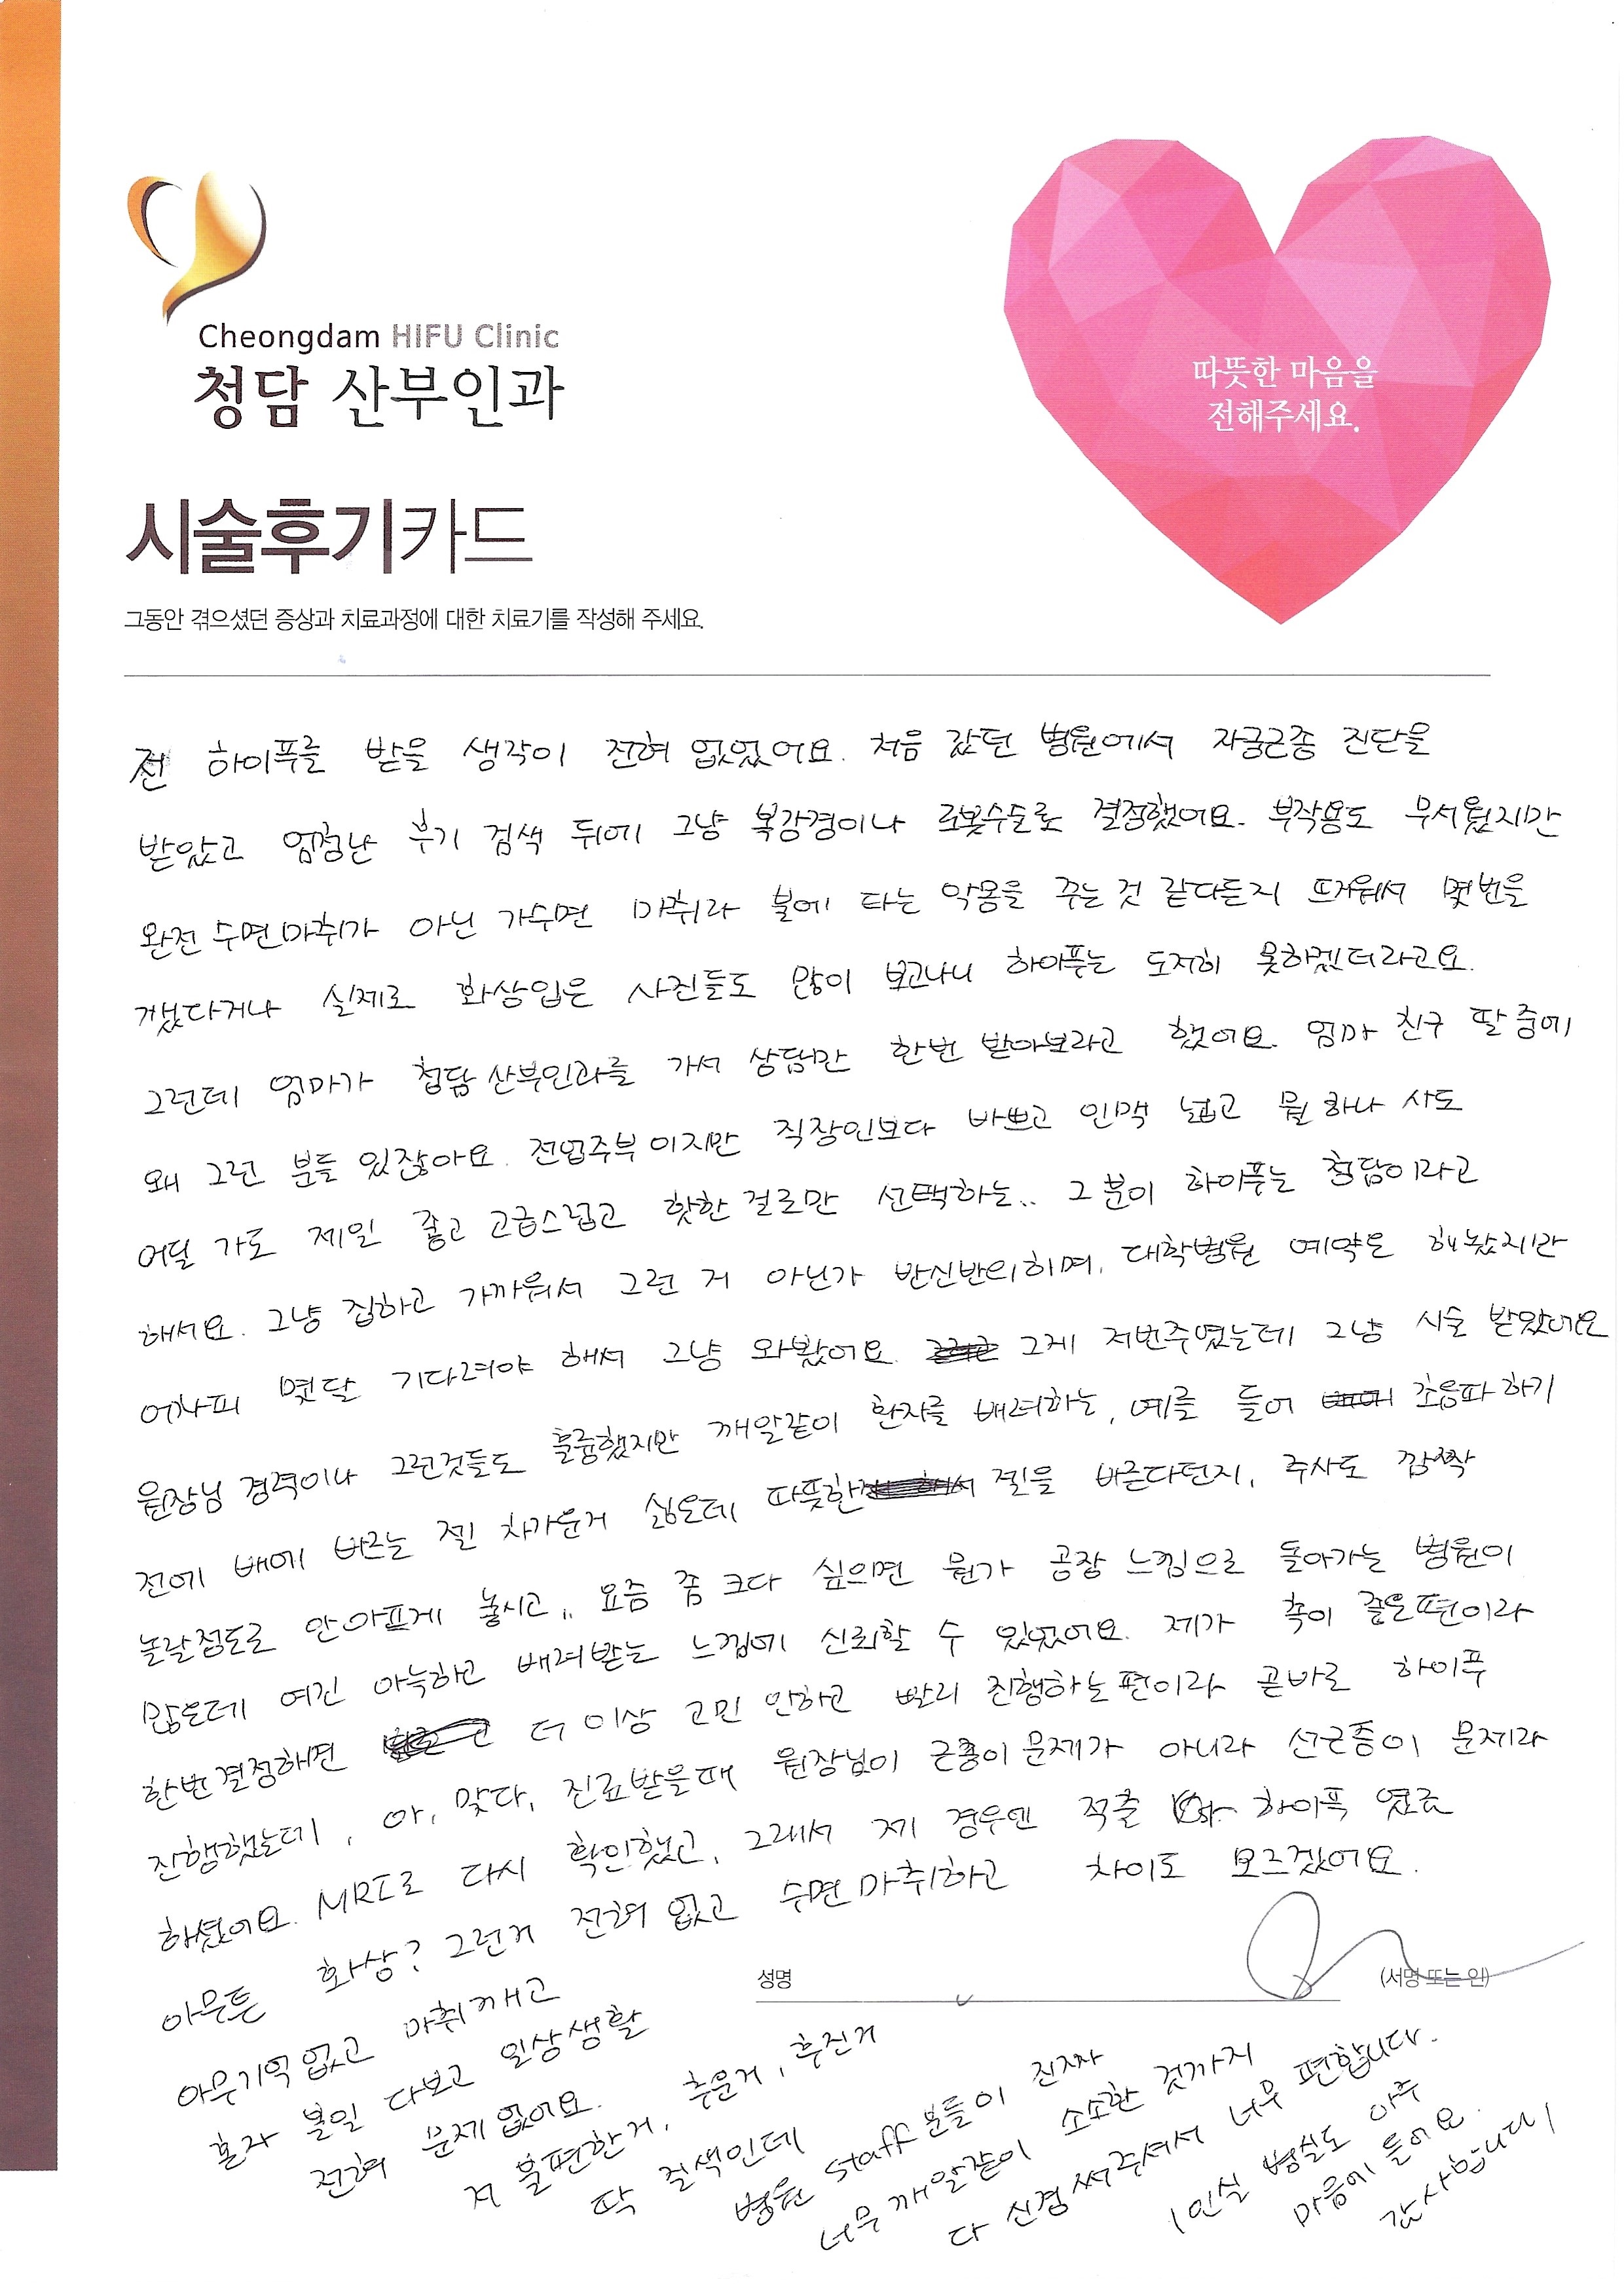 Cheongdam HIFU Clinic
청담 산부인과
따뜻한 마음을
전해주세요.
시술후기카드
그동안 겪으셨던 증상과 치료과정에 대한 치료기를 작성해 주세요.
전 하이푸를 받을 생각이 전혀 없었어요. 처음 갔던 병원에서 자궁근종 진단을
받았고 엄청난 후기 검색 뒤에 그냥 복강경이나 로봇수술로 결정했어요. 부작용도 무서웠지만
완전 수면마취가 아닌 가수면 마취라 불에 타는 악몽을 꾸는 것 같다든지 뜨거워서 몇번을
깼다거나 실제로 화상입은 사진들도 많이 보고나니 하이푸는 도저히 못하겠더라고요.
그런데 엄마가 청담 산부인과를 가서 상담만 한번 받아보라고 했어요. 엄마 친구 딸 중에
왜 그런 분들 있잖아요. 전업주부이지만 직장인보다 바쁘고 인맥 넓고 뭘 하나 사도
어딜 가도 제일 좋고 고급스럽고 핫한 걸로만 선택하는.. 그 분이 하이푸는 청담이라고
해서요. 그냥 집하고 가까워서 그런 거 아닌가 반신반의하며, 대학병원 예약은 해놨지만
어차피 몇달 기다려야 해서 그냥 와봤어요. 그게 저번주였는데 그냥 시술 받았어요
원장님 경력이나 그런것들도 훌륭했지만 깨알같이 환자를 배려하는, 예를 들어 초음파 하기
전에 배에 바르는 젤 차가운거 싫은데 따뜻한 젤을 바른다던지, 주사도 깜짝
놀랄정도로 안아프게 놓시고,, 요즘 좀 크다 싶으면 뭔가 공장 느낌으로 돌아가는 병원이
많은데 여긴 아늑하고 배려받는 느낌에 신뢰할 수 있었어요. 제가 촉이 좋은편이라
한번 결정해면 더 이상 고민 안하고 빨리 진행하는 편이라 곧바로 하이푸
진행했는데, 아, 맞다, 진료받을때 원장님이 근종이 문제가 아니라 선근증이 문제라
하셨어요. MRI로 다시 확인했고, 그래서 제 경우엔 적출 or 하이푸 였죠
아무튼 화상? 그런거 전혀 없고 수면마취하고 차이도 모르겠어요.
성명 (서명 또는 인)
아무기억 없고 마취 깨고
혼자 볼일 다보고 일상생활
전혀 문제 없어요.
저 불편한거, 추운거, 후진거
딱 질색인데
병원 staff 분들이 진짜
너무 깨알같이 소소한 것까지
다 신경써주셔서 너무 편합니다.
1인실 병실도 아주
마음에 들어요.
감사합니다